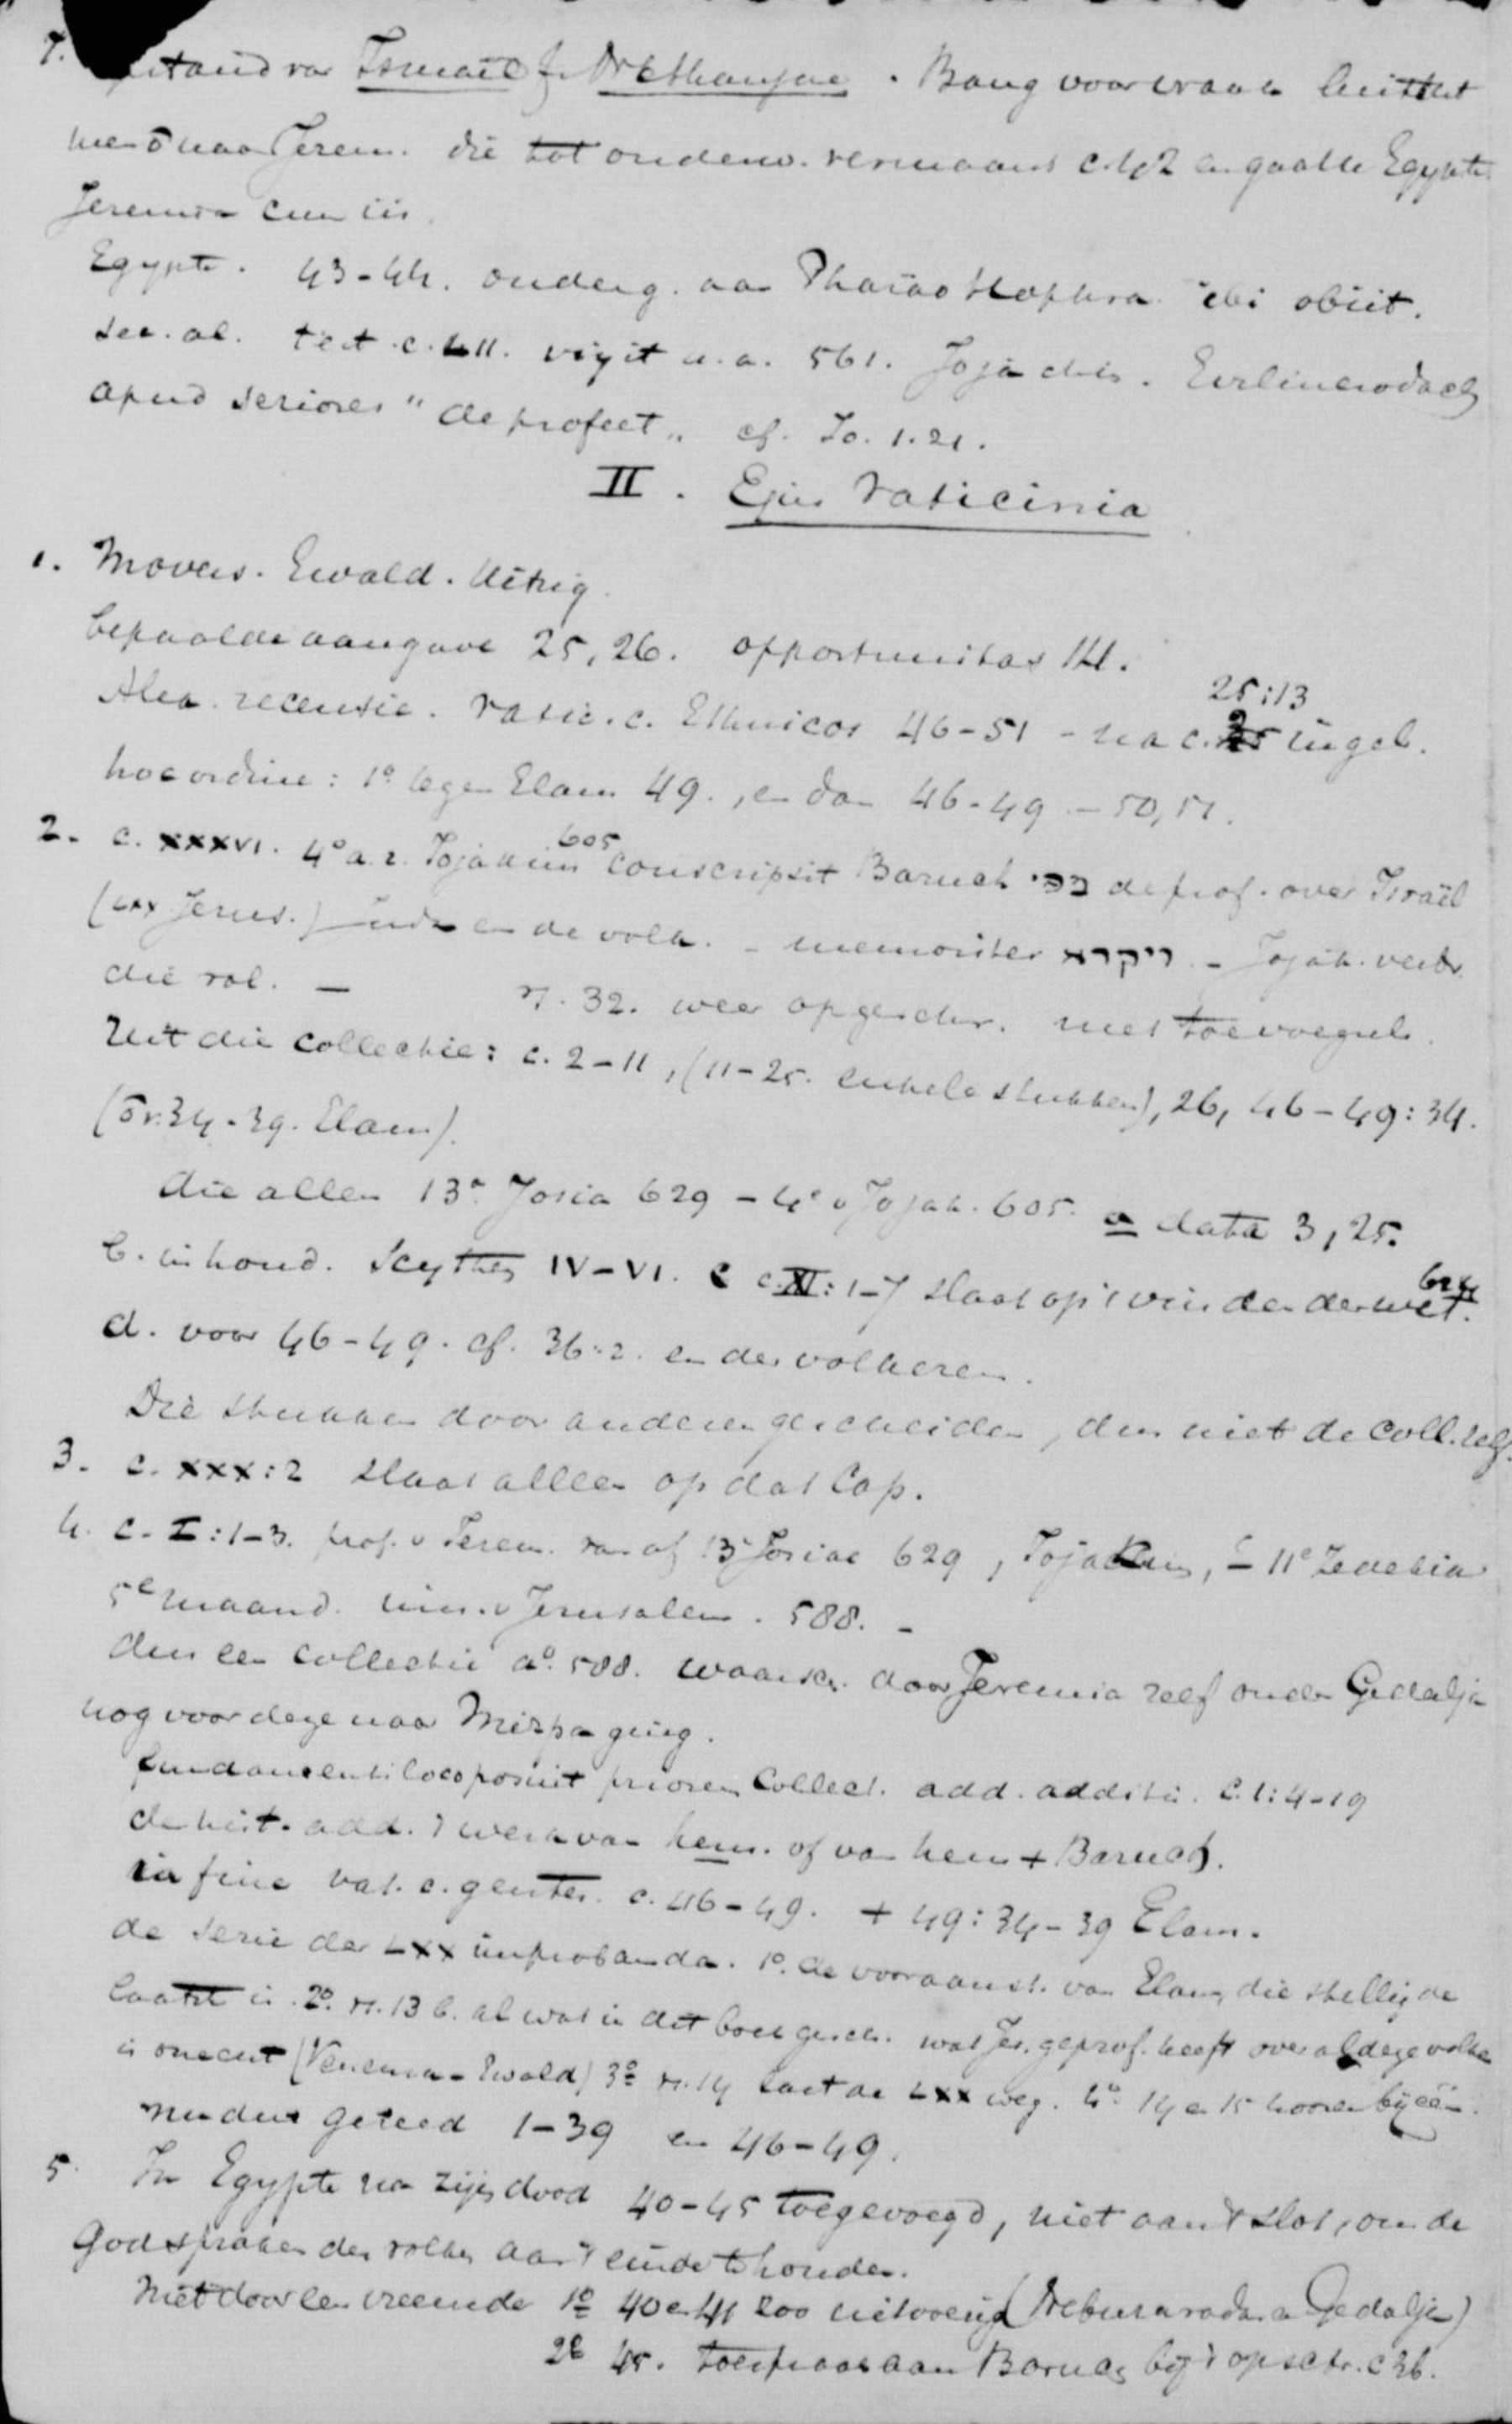 7. opstand van Ismaël f. Nethanjae. Bang voor wraak
men naar Jerem. die tot onderw. vermaant c. 42 en gaat le Egypte.
Jeremia cum iis.
Egypte. 43-44. onderg. aan Pharao Hophra ibi obiit.
sec. al. test. c. LII. vixit u.a. 561. Jojachin. Evilmerodach
apud seriores "de profeet" cf. Jo. 1.21.
II. Ejus vaticinia
1. Movers. Ewald. Hitzig.
bepaalde aangave 25, 26. opportunitas
Alex. recensie. vatic. c. Ethnicos 46-51 - na c. 25:13 ingel.
hoc ordine: 1° tegen Elam 49., en dan 46-49 - 50, 51.
2. c. XXXVI. 4° a. r. Jojakim 605 conscripsit Baruch מפי de prof. over Israël
(LXX Jerus.) Juda en de volk. - memoriter ויקרא - Jojak. verbr.
die rol. - vs. 32. weer opgeschr. met toevoegsels.
Uit die collectie: c. 2-11, (11-25. enkele stukken), 26, 46-49:34.
(- v. 34-39. Elam).
die allen 13e Josia 629 - 4e v Jojak. 605. a data 3, 25.
b. inhoud. Scythes IV-VI. c c. XI: 1-7 slaat op 't vinden der wet. 624
d. voor 46-49. cf. 36:2. en der volkeren.
Die stukken door anderen gescheiden, dus niet de coll. zelf.
3. c. XXX:2 slaat alleen op dat Cap.
4. c. I: 1-3. prof. v Jerem. van af 13e Josiae 629, Jojakim, - 11e Zedekia
5e maand. inn. v Jerusalem. 588. -
dus een collectie a°. 588. waarsch. door Jeremia zelf onder Gedalja
nog voor deze naar Mizpa ging.
fundamenti loco posuit priorem Collect. add. additis. c. 1:4-19
de hist. add. 't werk van hem. of van hem + Baruch.
in fine vat. c. gentes. c. 46-49. + 49:34-39 Elam.
de serie der LXX improbanda. 1°. de vooraanst. van Elam, die stellig de
laatste is. 2°. vs. 13 b. al wat in dit boek geschr. wat Jer. geprof. heeft over al deze volken
is onecht (Venema - Ewald) 3° vs. 14 laat de LXX weg. 4° 14 en 15 hooren bijeen.
nu dus gereed 1-39 en 46-49.
5. In Egypte na zijn dood 40-45 toegevoegd, niet aan 't slot, om de
Godspraken der volken aan 't einde te houden.
Niet door een vreemde 1° 40 en 41 zoo uitvoerig (Nebuzaradan a Gedalja)
2e 45. toespraak aan Baruch bij 't opschr. c 36.